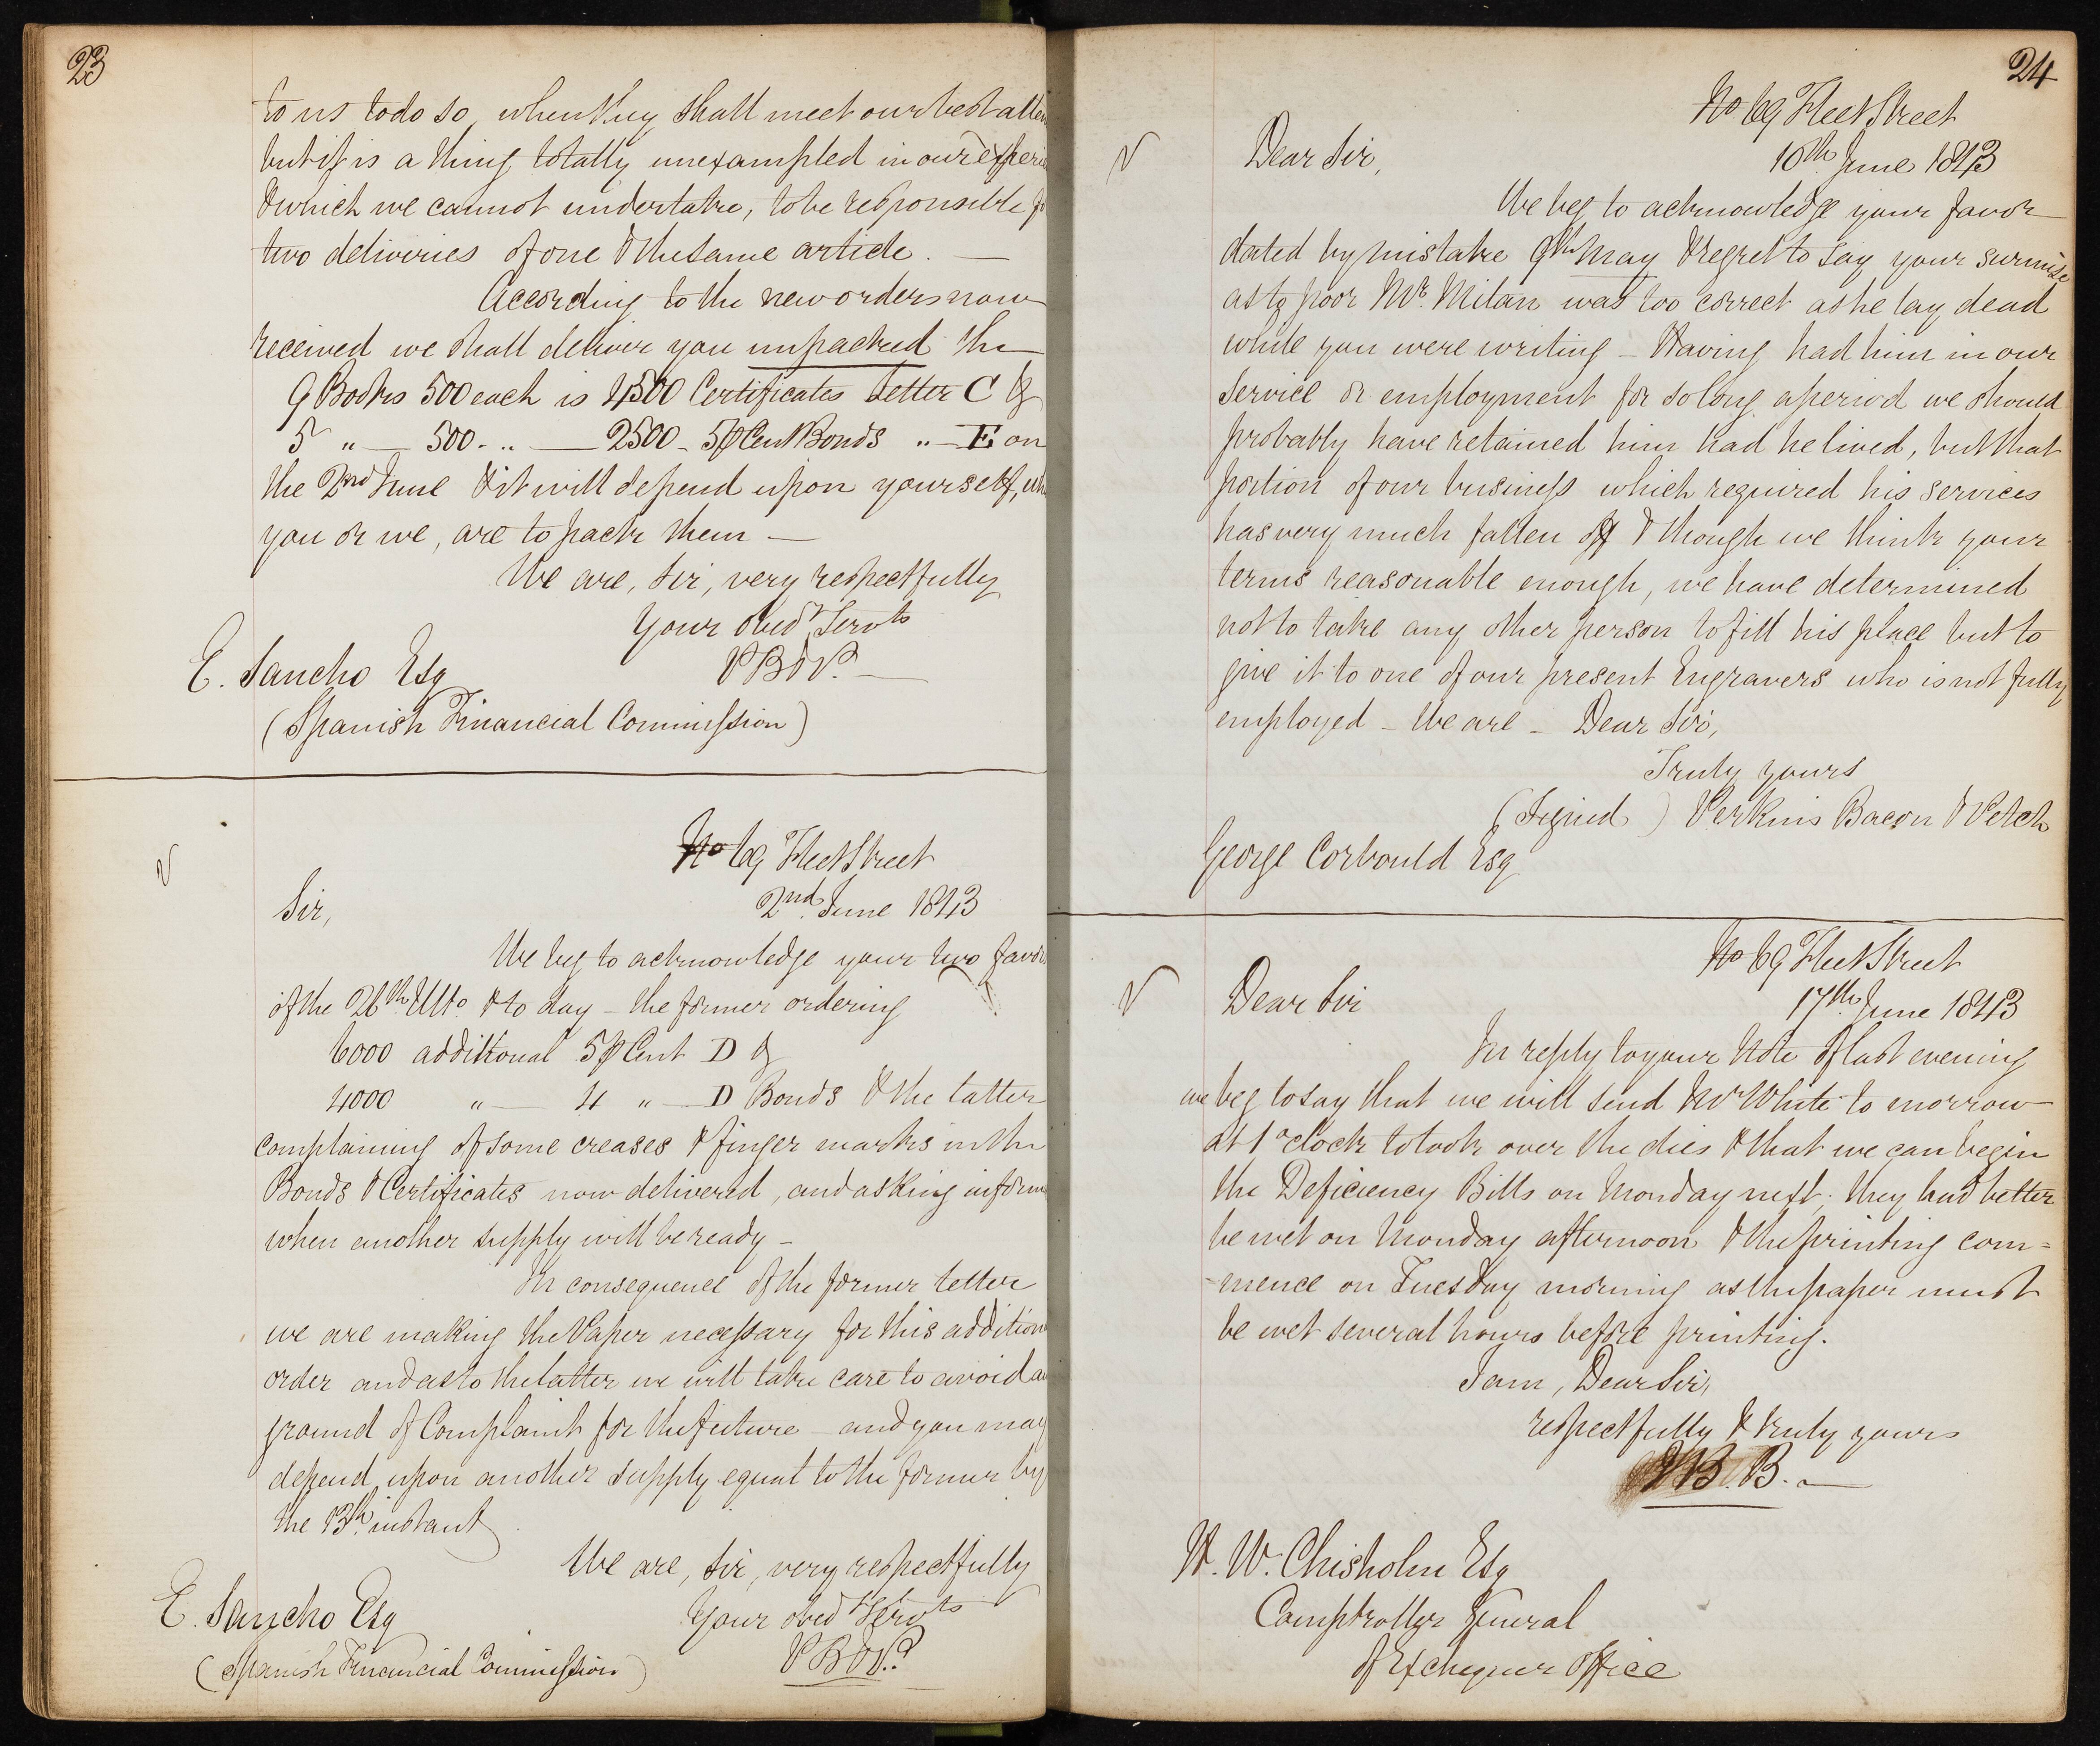 23
to us to do so, when they shall meet our best atten
but it is a thing totally unexampled in our experi
& which we cannot undertake, to be responsible fo
two deliveries of one & the same article. —
According to the new orders now
received we shall deliver you unpacked the
9 Books 500 each is 4500 Certificates Letter C &
5 " — 500 - " — 2500 - 5 ⅌ Cent Bonds " — E on
the 2nd June & it will depend upon yourself, whe
you or we, are to pack them —
We are, Sir, very respectfully
Your obedt Servts
PB&P. —
E. Sancho Esq
(Spanish Financial Commission)
No 69 Fleet Street
2nd June 1843
Sir,
We beg to acknowledge your two favor
of the 26th Ulto. & to day – the former ordering
6000 additional 5 ⅌ Cent D &
4000 " — 4 " — D Bonds & the latter
complaining of some creases & finger marks in the
Bonds & Certificates now delivered, and asking inform
when another supply will be ready –
In consequence of the former letter
we are making the Paper necessary for this addition
order and as to the latter we will take care to avoid a
ground of Complaint for the future – and you may
depend upon another supply equal to the former by
the 13th instant
We are, Sir, very respectfully
Your obed Servts
PB&P.
E. Sancho Esq
(Spanish Financial Commission)
24
No 69 Fleet Street
10th June 1843
Dear Sir,
We beg to acknowledge your favor
dated by mistake 9th May & regret to say your surmise
as to poor Mr. Milan was too correct as he lay dead
while you were writing – Having had him in our
service or employment for so long a period we should
probably have retained him had he lived, but that
portion of our business which required his services
has very much fallen off & though we think your
terms reasonable enough, we have determined
not to take any other person to fill his place but to
give it to one of our present Engravers who is not fully
employed – We are – Dear Sir,
Truly yours
(Signed) Perkins Bacon & Petch
George Corbould Esq
No 69 Fleet Street
17th June 1843
Dear Sir
In reply to your Note of last evening
we beg to say that we will send Mr White to morrow
at 1 oclock to look over the dies & that we can begin
the Deficiency Bills on Monday next; they had better
be wet on Monday afternoon & the printing com=
-mence on Tuesday morning as the paper must
be wet several hours before printing.
I am, Dear Sir,
respectfully & truly yours
B. —
H. W. Chisholm Esq
Comptroller General
of Exchequer Office